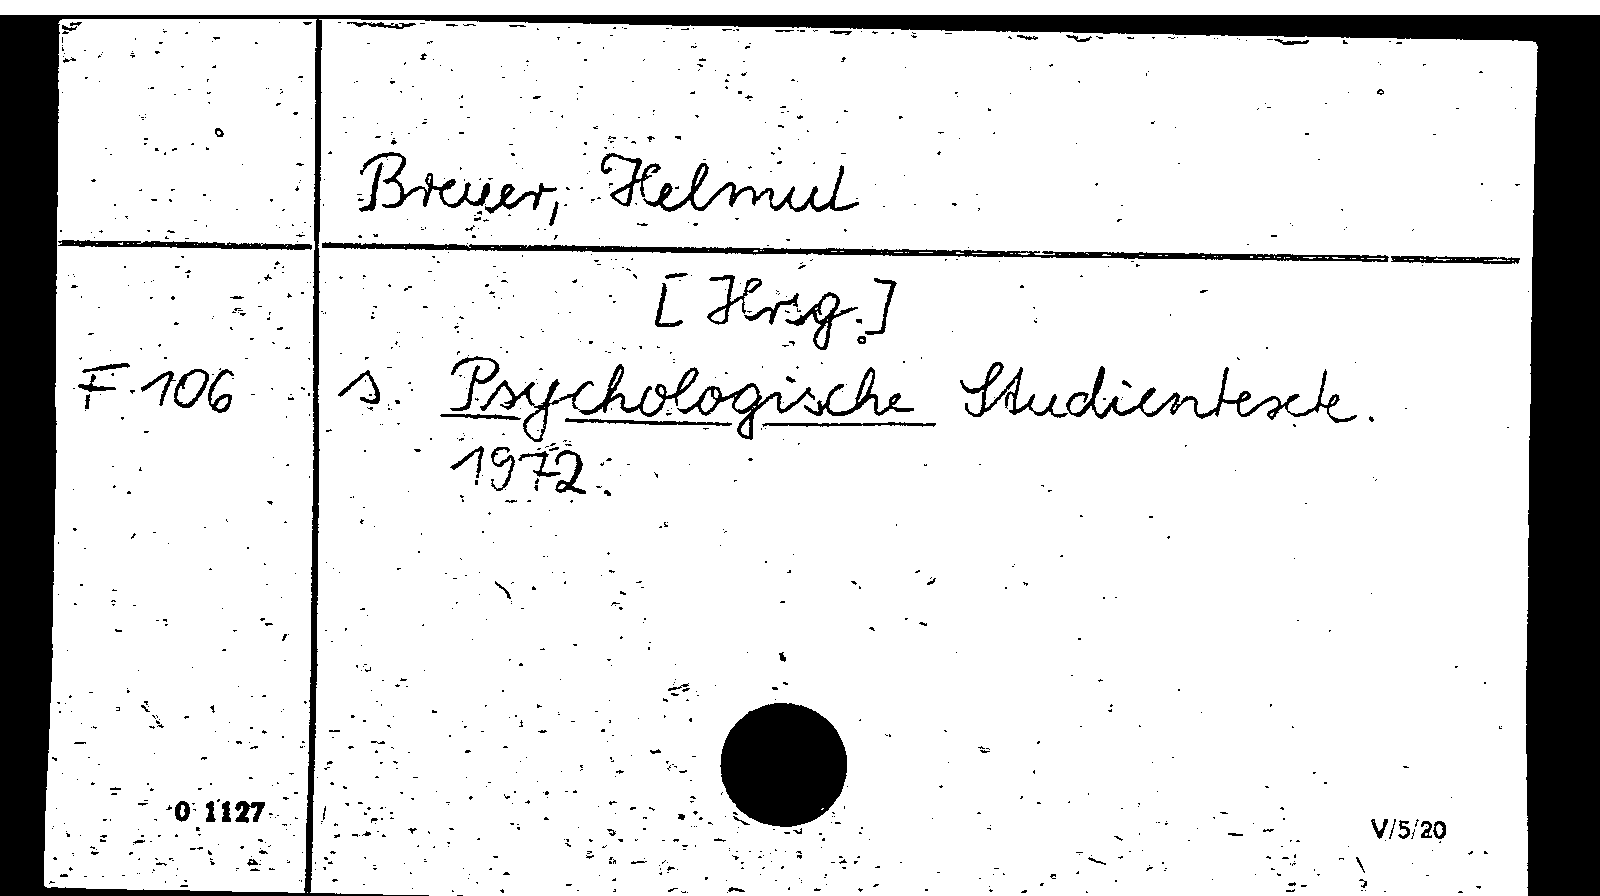 Breuer, Helmut
[Hrsg.]
F 106 s. Psychologische Studientexte.
1972.
0 1127
V/5/20